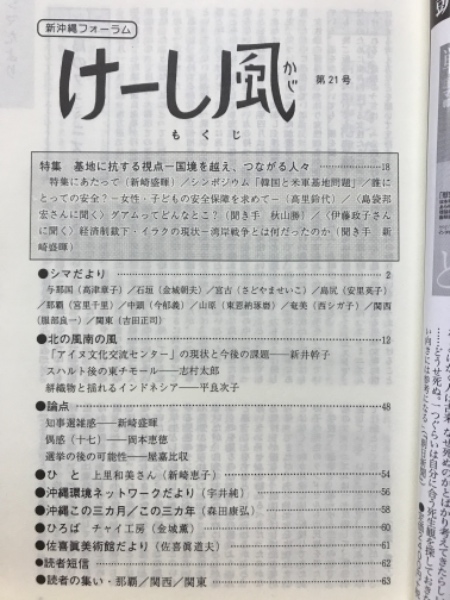 新沖縄フォーラム
けーし風
かじ
第21号
もくじ
特集 基地に抗する視点―国境を越え、つながる人々 ……18
特集にあたって(新崎盛暉)/シンポジウム「韓国と米軍基地問題」/誰に
とっての安全?―女性・子どもの安全保障を求めて―(高里鈴代)/〈島袋邦
宏さんに聞く〉グアムってどんなとこ?(聞き手 秋山勝)/〈伊藤政子さん
に聞く〉経済制裁下・イラクの現状―湾岸戦争とは何だったのか(聞き手 新
崎盛暉)
●シマだより ……2
与那国(高津章子)/石垣(金城朝夫)/宮古(さどやませいこ)/島尻(安里英子)
/那覇(宮里千里)/中頭(今郁義)/山原(東恩納琢磨)/奄美(西シガ子)/関西
(服部良一)/関東(吉田正司)
●北の風南の風 ……12
「アイヌ文化交流センター」の現状と今後の課題――新井幹子
スハルト後の東チモール――志村太郎
絣織物と揺れるインドネシア――平良次子
●論点 ……48
知事選雑感――新崎盛暉
偶感(十七)――岡本恵徳
選挙の後の可能性――屋嘉比収
●ひと 上里和美さん(新崎恵子) ……54
●沖縄環境ネットワークだより(宇井純) ……56
●沖縄この三カ月/この三カ年(森田康弘) ……58
●ひろば チャイ工房(金城薫) ……60
●佐喜眞美術館だより(佐喜眞道夫) ……61
●読者短信 ……62
●読者の集い・那覇/関西/関東 ……63